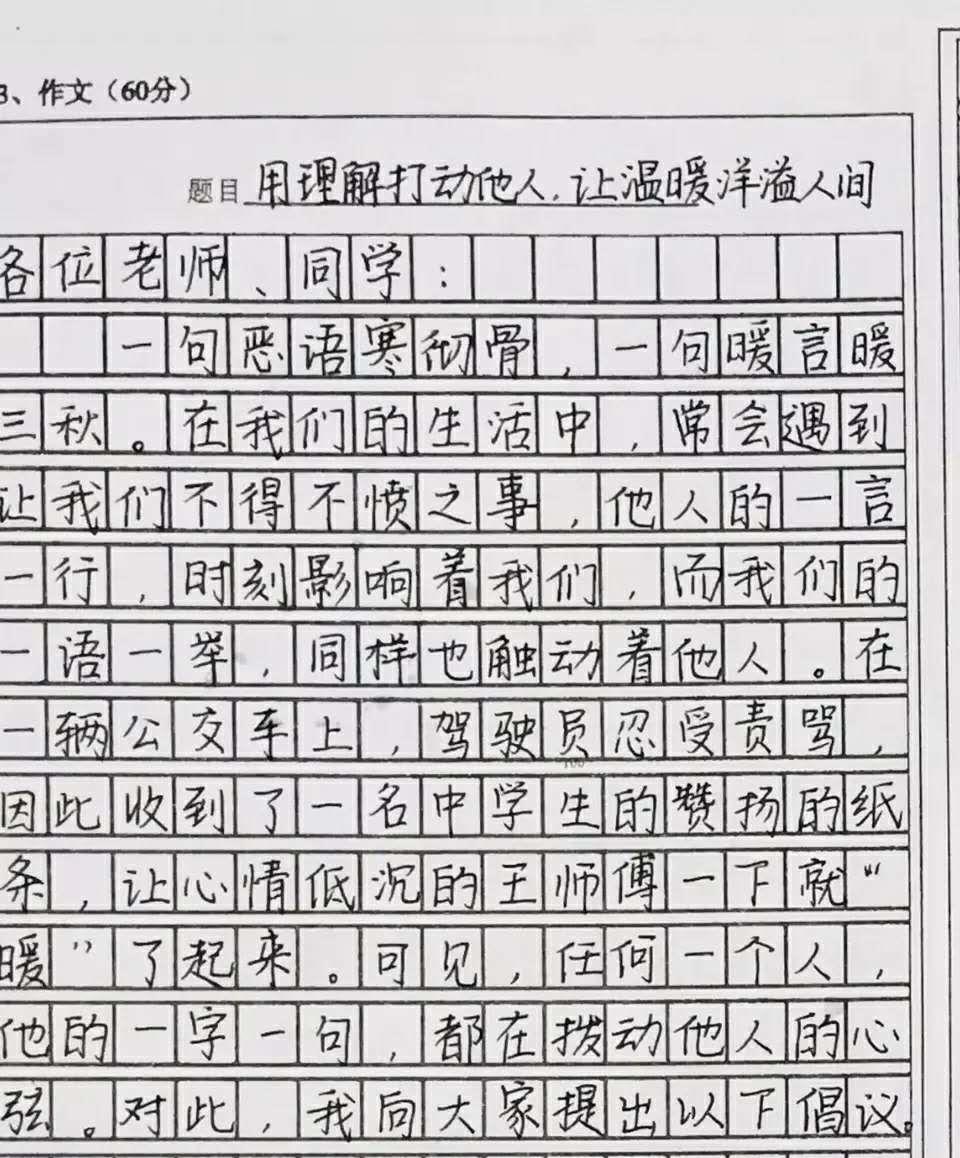 3、作文（60分）
题目 用理解打动他人，让温暖洋溢人间
各位老师、同学：
一句恶语寒彻骨，一句暖言暖
三秋。在我们的生活中，常会遇到
让我们不得不愤之事，他人的一言
一行，时刻影响着我们，而我们的
一语一举，同样也触动着他人。在
一辆公交车上，驾驶员忍受责骂，
因此收到了一名中学生的赞扬的纸
条，让心情低沉的王师傅一下就“
暖”了起来。可见，任何一个人，
他的一字一句，都在拨动他人的心
弦。对此，我向大家提出以下倡议。